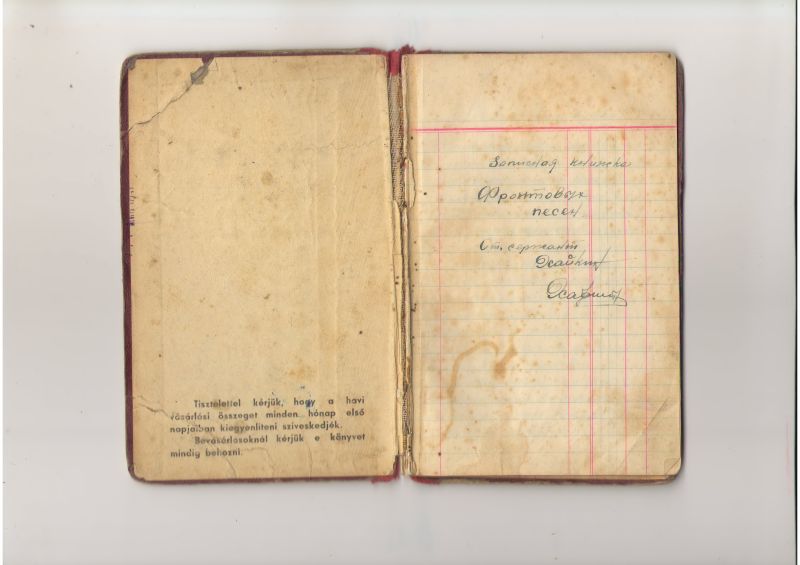 Tisztelettel kérjük, hogy a havi
vásárlási összeget minden hónap első
napjaiban kiegyenlíteni sziveskedjék.
Bevásárlásoknál kérjük e könyvet
mindig behozni.
Записная книжка
Фронтовых
песен
Ст. сержант